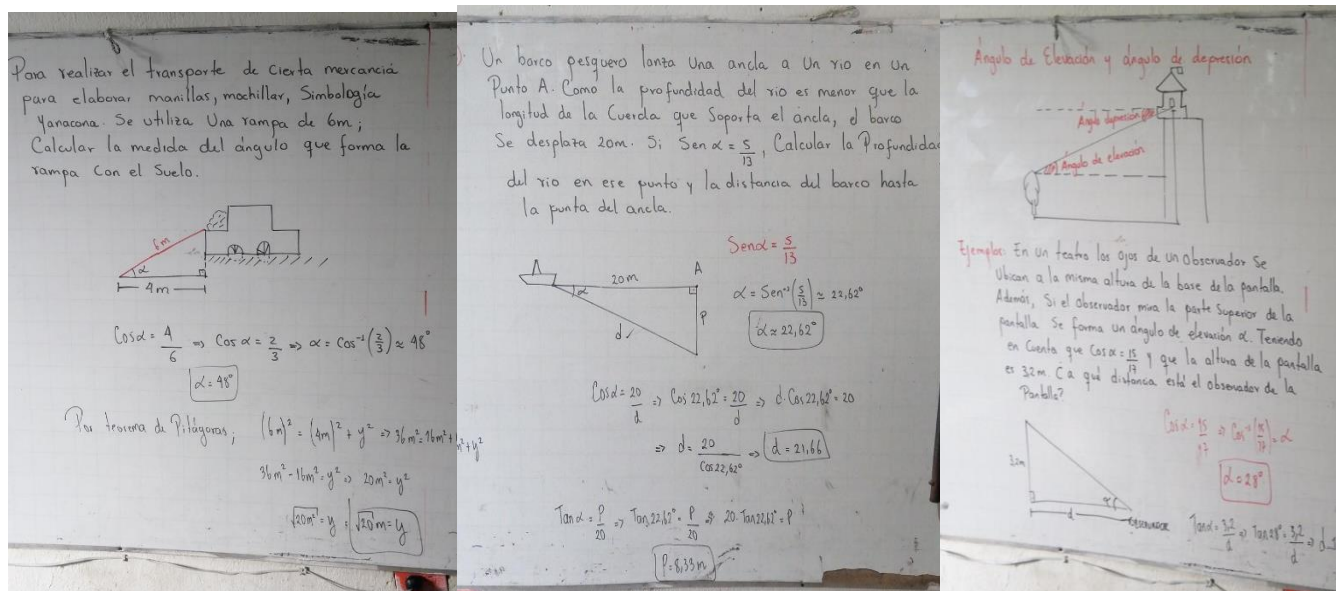 Para realizar el transporte de cierta mercancia
para elaborar manillas, mochillar, Simbología
Yanacona. Se utiliza Una rampa de 6m;
Calcular la medida del ángulo que forma la
rampa Con el Suelo.
6m
α
4m
Cosα = 4/6 ⇒ Cos α = 2/3 ⇒ α = Cos⁻¹(2/3) ≈ 48°
α = 48°
Por teorema de Pitágoras; (6m)² = (4m)² + y² ⇒ 36m² = 16m² + y²
36m² - 16m² = y² ⇒ 20m² = y²
√20m² = y = √20 m = y
Un barco pesquero lanza Una ancla a Un rio en un
Punto A. Como la profundidad del rio es menor que la
longitud de la Cuerda que Soporta el ancla, el barco
Se desplaza 20m. Si Sen α = 5/13, Calcular la Profundidad
del rio en ese punto y la distancia del barco hasta
la punta del ancla.
Senα = 5/13
20m
A
α
α = Sen⁻¹(5/13) ≈ 22,62°
P
α ≈ 22,62°
d
Cosα = 20/d ⇒ Cos 22,62° = 20/d ⇒ d·Cos 22,62° = 20
⇒ d = 20/Cos 22,62° ⇒ d = 21,66
Tanα = P/20 ⇒ Tan 22,62° = P/20 ⇒ 20·Tan 22,62° = P
P = 8,33 m
Ángulo de Elevación y ángulo de depresión
Ángulo depresión
Ángulo de elevación
Ejemplo: En un teatro los ojos de un Observador Se
Ubican a la misma altura de la base de la pantalla.
Además, Si el Observador mira la parte Superior de la
pantalla Se forma un ángulo de elevación α. Teniendo
en Cuenta que Cosα = 15/17 y que la altura de la pantalla
es 3,2m. ¿a qué distancia está el observador de la
Pantalla?
Cosα = 15/17 ⇒ Cos⁻¹(15/17) = α
3,2m
α = 28°
α
d
Observador
Tanα = 3,2/d ⇒ Tan 28° = 3,2/d ⇒ d